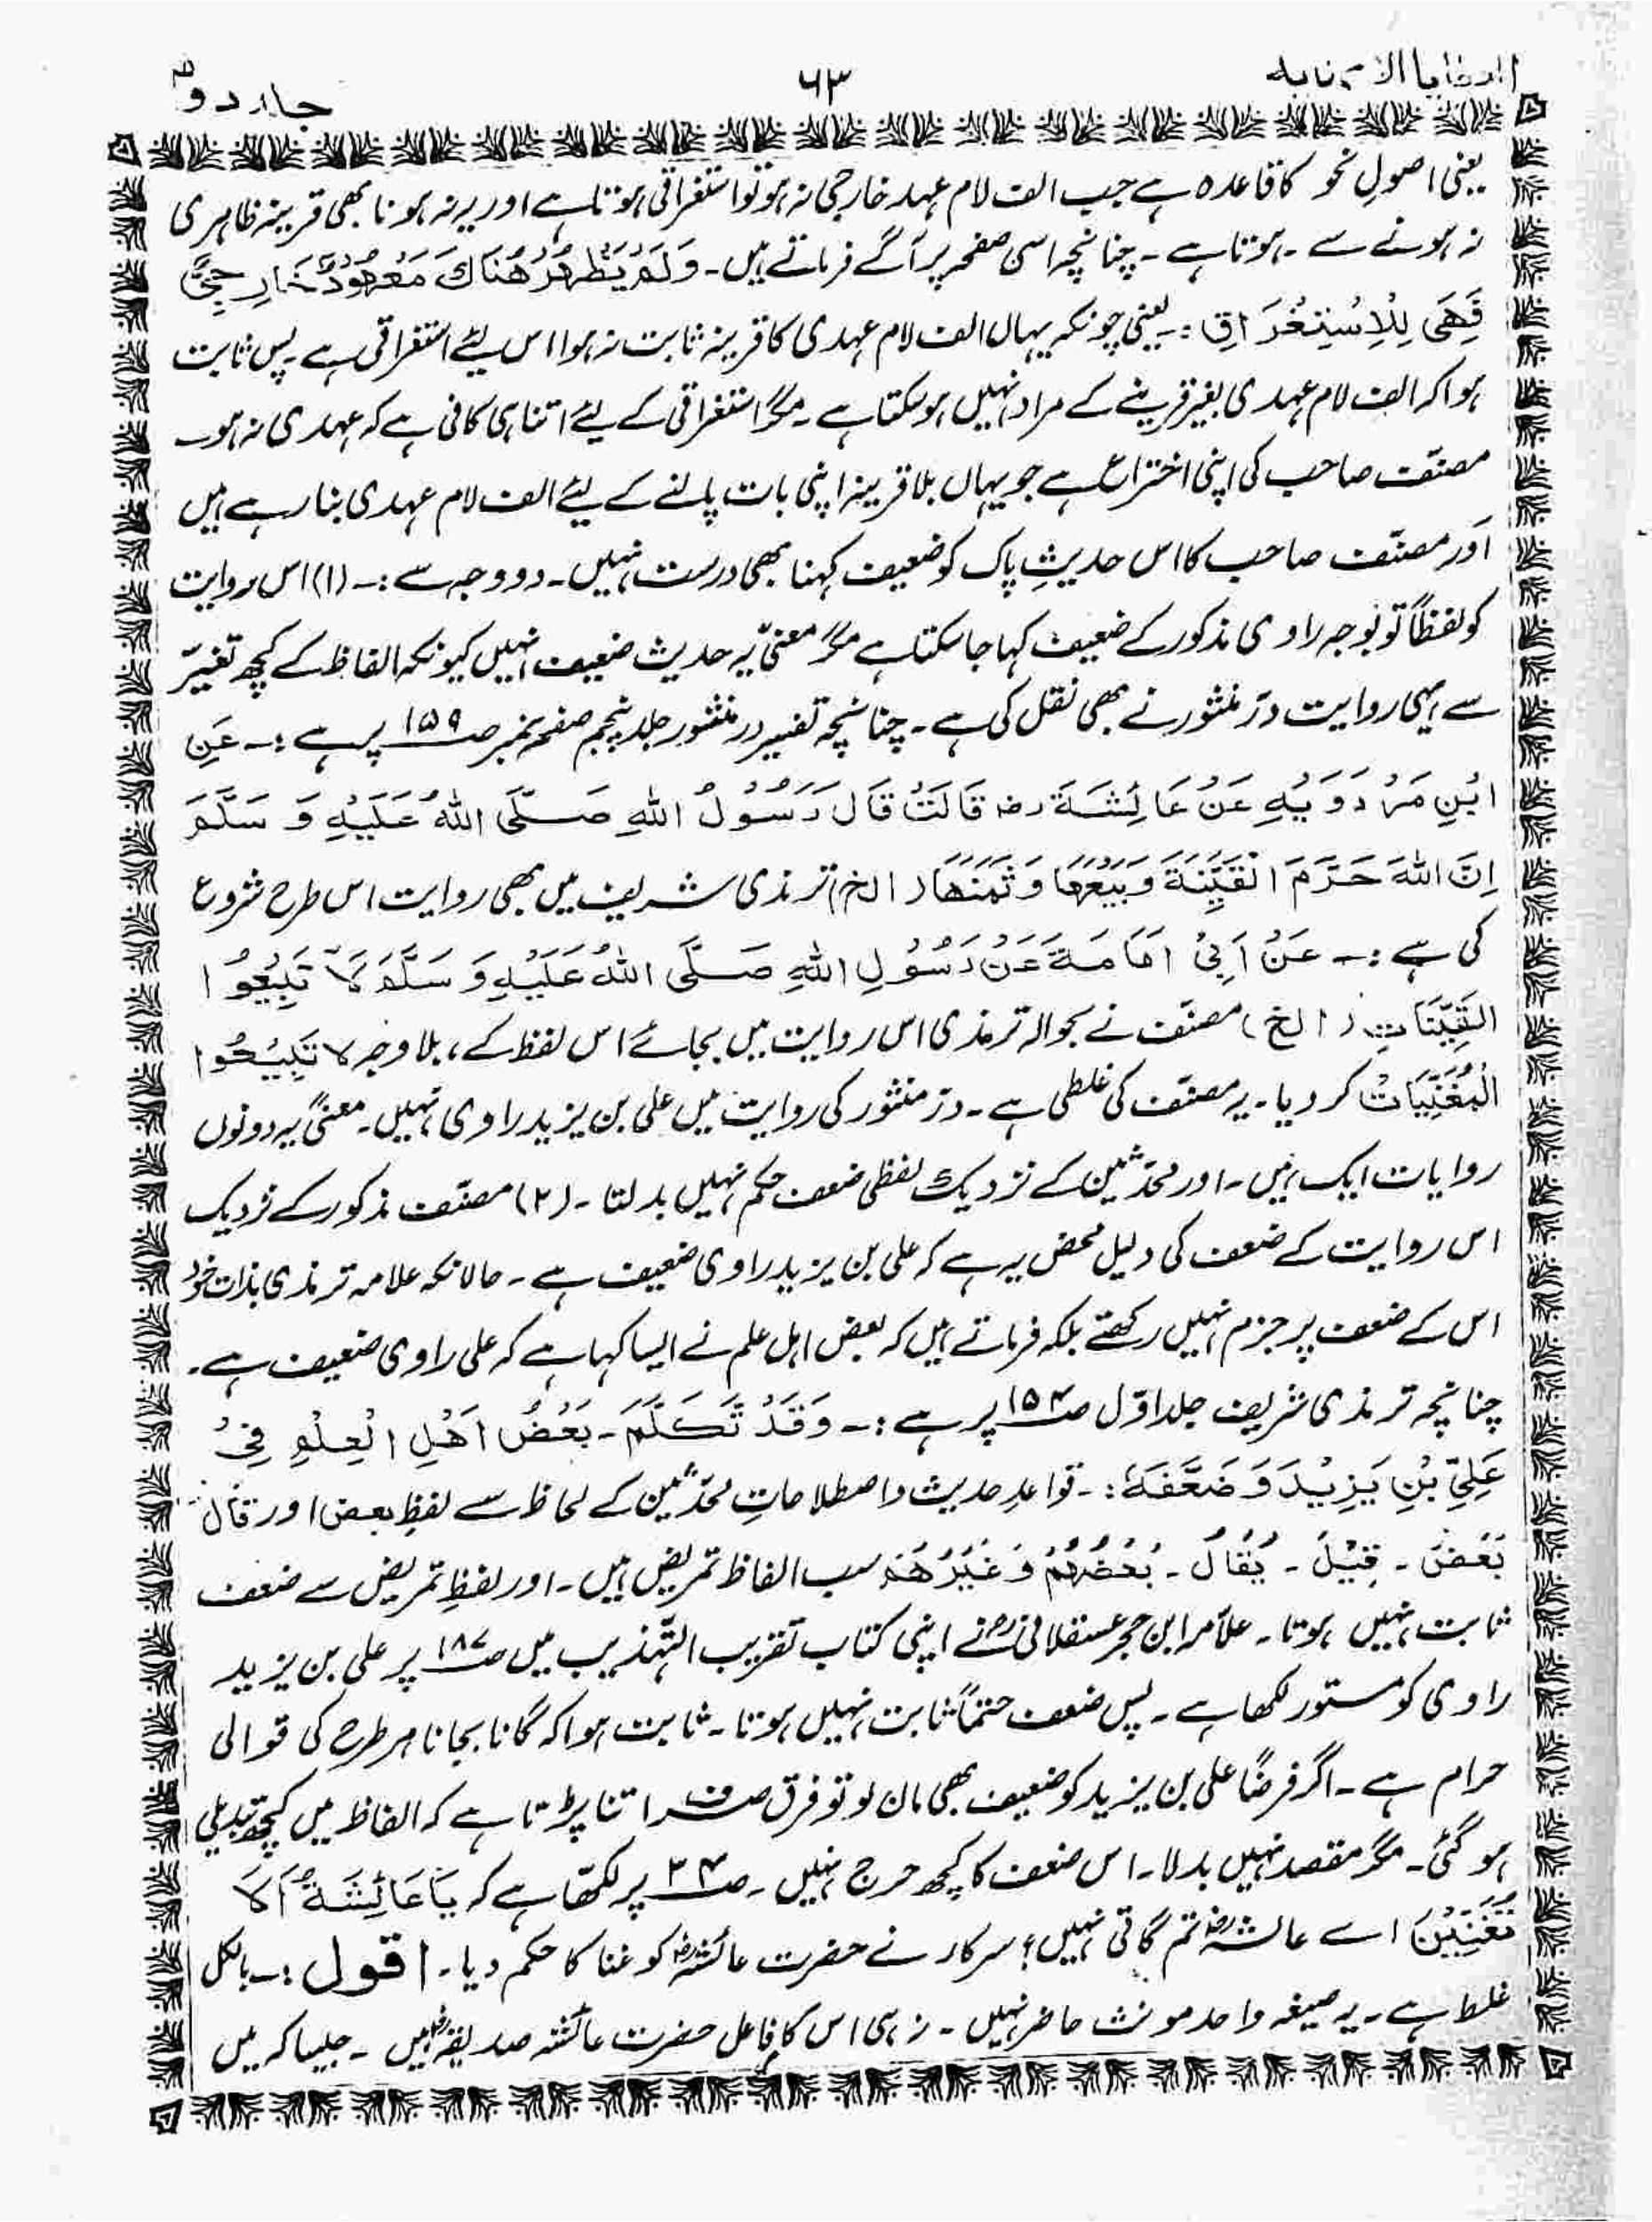 العطایا الاحمدیہ ۶۳ جلد دوم
یعنی اصولِ نحو کا قاعدہ ہے جب الف لام عہد خارجی نہ ہو تو استغراقی ہوتا ہے اور یہ نہ ہونا بھی قرینہ ظاہری
نہ ہونے سے ۔ ہوتا ہے ۔ چنانچہ اسی صفحہ پر آگے فرماتے ہیں ۔ وَلَمْ یَظْھَرْ ھُنَاكَ مَعْھُوْدٌ خَارِجِیٌّ
فَھِیَ لِلْاِسْتِغْرَاقِ :۔ یعنی چونکہ یہاں الف لام عہدی کا قرینہ ثابت نہ ہوا اس لیئے استغراقی ہے پس ثابت
ہوا کہ الف لام عہدی بغیر قرینے کے مراد نہیں ہو سکتا ہے ۔ مگر استغراقی کے لیئے اتنا ہی کافی ہے کہ عہدی نہ ہو۔
مصنّف صاحب کی اپنی اختراع ہے جو یہاں بلا قرینہ اپنی بات پالنے کے لیئے الف لام عہدی بنا رہے ہیں
اَور مصنّف صاحب کا اس حدیثِ پاک کو ضعیف کہنا بھی درست نہیں ۔ دو وجہ سے :۔ (۱) اس روایت
کو لفظاً تو بوجہ راوی مذکور کے ضعیف کہا جا سکتا ہے مگر معنیً یہ حدیث ضعیف نہیں کیونکہ الفاظ کے کچھ تغیّر
سے یہی روایت درّ منثور نے بھی نقل کی ہے ۔ چنانچہ تفسیر در منثور جلد پنجم صفحہ نمبر صـ۱۵۹ پر ہے :۔ عَنِ
ابْنِ مَرْدَوَیْہِ عَنْ عَائِشَۃَ رضہ قَالَتْ قَالَ رَسُوْلُ اللّٰہِ صَلَّی اللّٰہُ عَلَیْہِ وَ سَلَّمَ
اِنَّ اللّٰہَ حَرَّمَ الْقَیِّنَۃَ وَبَیْعَھَا وَ ثَمَنَھَا (الخ) ترمذی شریف میں بھی روایت اس طرح شروع
کی ہے :۔ عَنْ اَبِیْ اُمَامَۃَ عَنْ رَسُوْلِ اللّٰہِ صَلَّی اللّٰہُ عَلَیْہِ وَ سَلَّمَ لَا تَبِیْعُوْا
الْقَیِّنَاتِ (الخ) مصنّف نے بحوالہ ترمذی اس روایت میں بجائے اس لفظ کے، بلا وجہ لا تَبِیْعُوا
الْمُغَنِّیَاتْ کر دیا ۔ یہ مصنّف کی غلطی ہے ۔ درّ منثور کی روایت میں علی بن یزید راوی نہیں ۔ معنیً یہ دونوں
روایات ایک ہیں ۔ اور محدّثین کے نزدیک لفظی ضعف حکم نہیں بدلتا ۔ (۲) مصنّف مذکور کے نزدیک
اس روایت کے ضعف کی دلیل محض یہ ہے کہ علی بن یزید راوی ضعیف ہے ۔ حالانکہ علامہ ترمذی بذات خود
اس کے ضعف پر جزم نہیں رکھتے بلکہ فرماتے ہیں کہ بعض اہل علم نے ایسا کہا ہے کہ علی راوی ضعیف ہے ۔
چنانچہ ترمذی شریف جلد اوّل صـ۱۵۴ پر ہے :۔ وَقَدْ تَکَلَّمَ ۔ بَعْضُ اَھْلِ الْعِلْمِ فِیْ
عَلِیِّ بْنِ یَزِیْدَ وَ ضَعَّفَہٗ :۔ قواعدِ حدیث و اصطلاحاتِ محدّثین کے لحاظ سے لفظِ بعض اور قَالَ
بَعْضُ ۔ قِیْلَ ۔ یُقَالُ ۔ بَعْضُھُمْ وَ غَیْرُھُمْ سب الفاظ تمریض ہیں ۔ اور لفظِ تمریض سے ضعف
ثابت نہیں ہوتا ۔ علّامہ ابن حجر عسقلانیؒ نے اپنی کتاب تقریب التّہذیب میں صـ۱۸۷ پر علی بن یزید
راوی کو مستور لکھا ہے ۔ پس ضعف حتماً ثابت نہیں ہوتا ۔ ثابت ہوا کہ گانا بجانا ہر طرح کی قوالی
حرام ہے ۔ اگر فرضًا علی بن یزید کو ضعیف بھی مان لو تو فرق صرف اتنا پڑتا ہے کہ الفاظ میں کچھ تبدیلی
ہو گئی ۔ مگر مقصد نہیں بدلا ۔ اس ضعف کا کچھ حرج نہیں ۔ صـ۳۴ پر لکھّا ہے کہ یَا عَائِشَۃُ اَلَا
تُغَنِّیْنَ اے عائشہؓ تم گاتی نہیں؟ سرکار نے حضرت عائشہؓ کو غنا کا حکم دیا ۔ اقول :۔ بالکل
غلط ہے ۔ یہ صیغہ واحد مونث حاضر نہیں ۔ نہ ہی اس کا فاعل حضرت عائشہ صدیقہؓ ہیں ۔ جیسا کہ میں